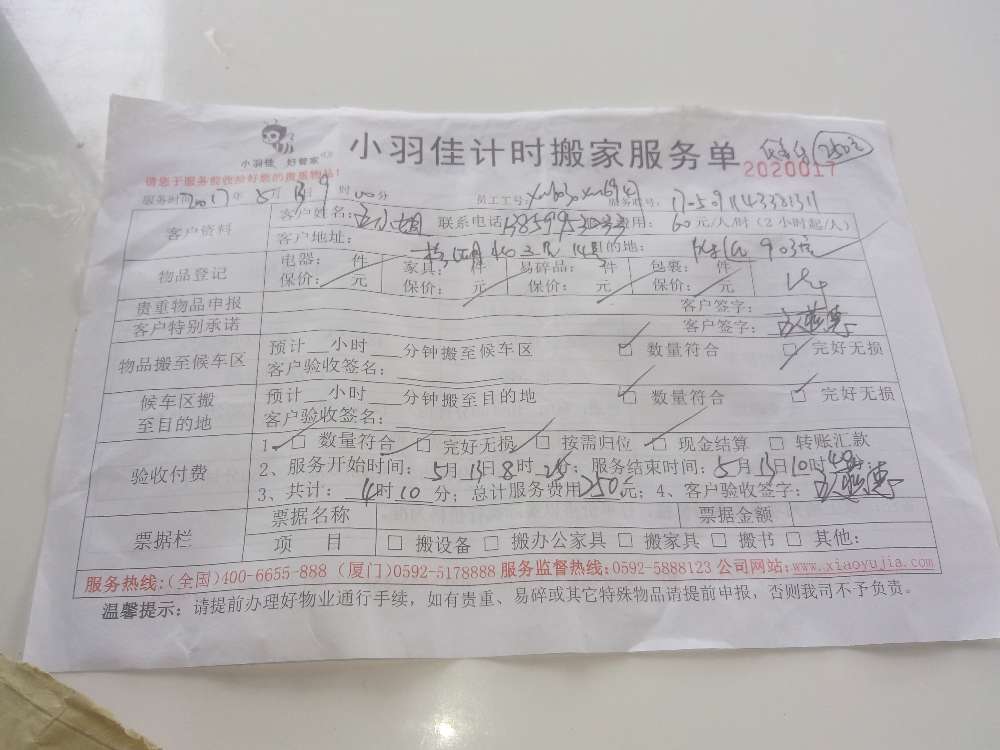 小羽佳 好管家
小羽佳计时搬家服务单 250元
请您于服务前收拾好您的贵重物品!
2020017
服务时间:2017年5月13日9时00分 员工工号: 服务单号:
客户资料 客户姓名: 联系电话: 费用:60元/人/时(2小时起/人)
客户地址: 目的地:
物品登记 电器: 件 家具: 件 易碎品: 件 包裹: 件
保价: 元 保价: 元 保价: 元 保价: 元
贵重物品申报 客户签字:
客户特别承诺 客户签字:
物品搬至候车区 预计__小时___分钟搬至候车区 □ 数量符合 □ 完好无损
客户验收签名:
候车区搬至目的地 预计__小时___分钟搬至目的地 □ 数量符合 □ 完好无损
客户验收签名:
验收付费 1、□ 数量符合 □ 完好无损 □ 按需归位 □ 现金结算 □ 转账汇款
2、服务开始时间:5月13日8时 分;服务结束时间:5月13日10时40分;
3、共计:4时10分;总计服务费用250元;4、客户验收签字:
票据栏 票据名称 票据金额
项 目 □ 搬设备 □ 搬办公家具 □ 搬家具 □ 搬书 □ 其他:
服务热线:(全国)400-6655-888 (厦门)0592-5178888 服务监督热线:0592-5888123 公司网站:www.xiaoyujia.com
温馨提示:请提前办理好物业通行手续,如有贵重、易碎或其它特殊物品请提前申报,否则我司不予负责。